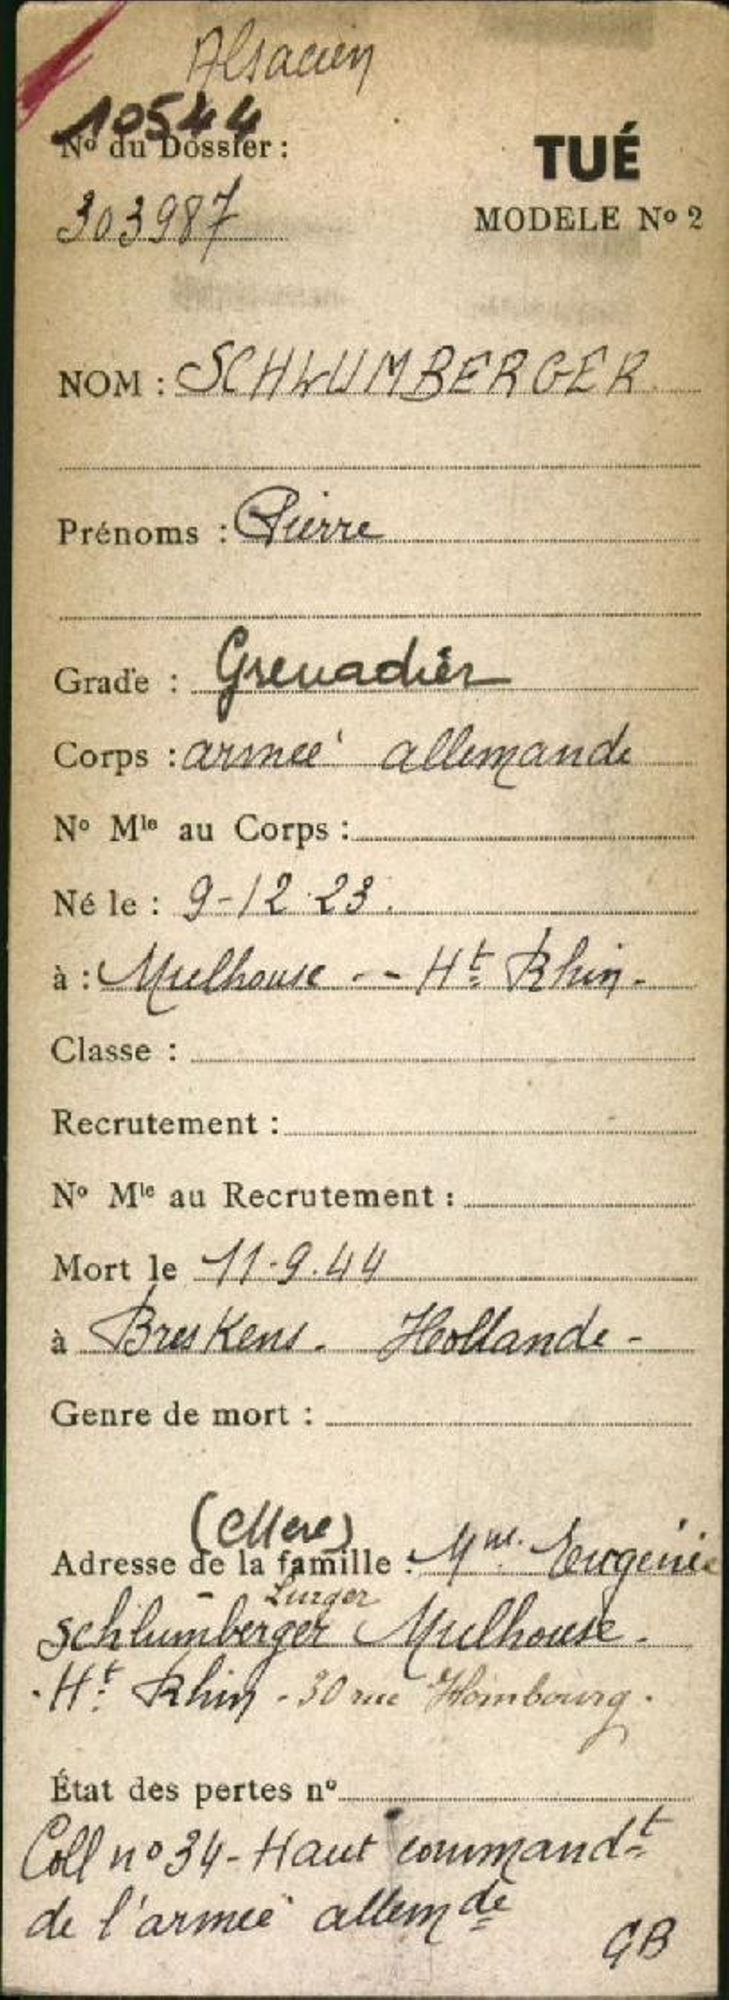 Alsacien
10544
Nº du Dossier :
TUÉ
303987
MODELE Nº 2
NOM : SCHLUMBERGER
Prénoms : Pierre
Grade : Grenadier
Corps : armée allemande
Nº Mle au Corps :
Né le : 9-12-23.
à : Mulhouse -- Ht Rhin -
Classe :
Recrutement :
Nº Mle au Recrutement :
Mort le 11.9.44
à Breskens. Hollande -
Genre de mort :
(Mere)
Adresse de la famille : Mme. Eugénie
Lurger
Schlumberger Mulhouse.
Ht Rhin - 30 rue Hombourg.
État des pertes nº
Coll nº 34 - Haut commandt
de l'armée allemde
GB